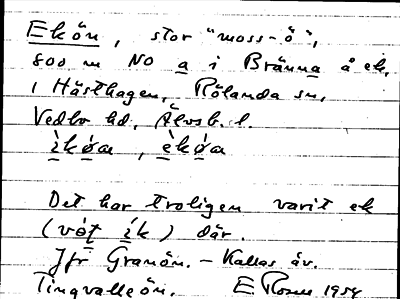 Ekön, stor "moss-ö",
800 m NO a i Bränna å ek.
i Hästhagen, Rölanda sn,
Vedbo hd, Älvsb. l.
ìkǿa, èkǿa
Det har troligen varit ek
(vót ík) där.
Jfr Granön. – Kallas äv.
Tingvalleön. E Rosen 1954